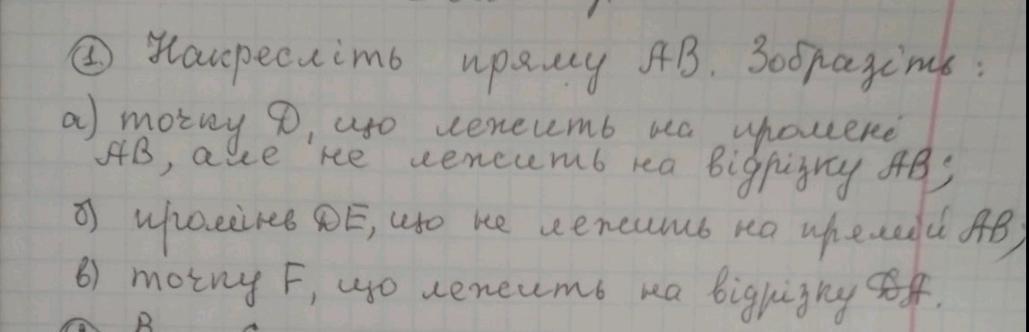 1. Накресліть пряму АВ. Зобразіть:
а) точку D, що лежить на промені
АВ, але не лежить на відрізку АВ;
б) промінь DE, що не лежить на прямій АВ;
в) точку F, що лежить на відрізку DA.
В